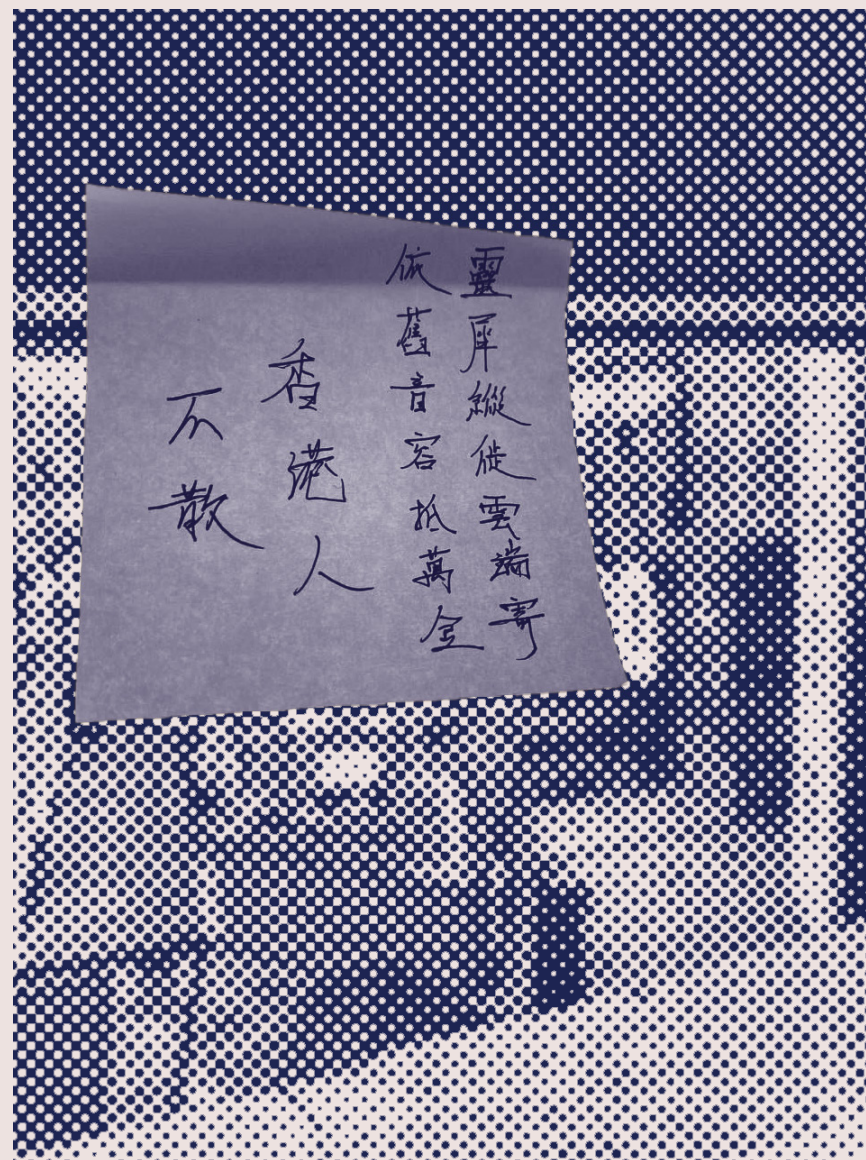 靈犀縱從雲端寄
依舊音容抵萬金
香港人
不散